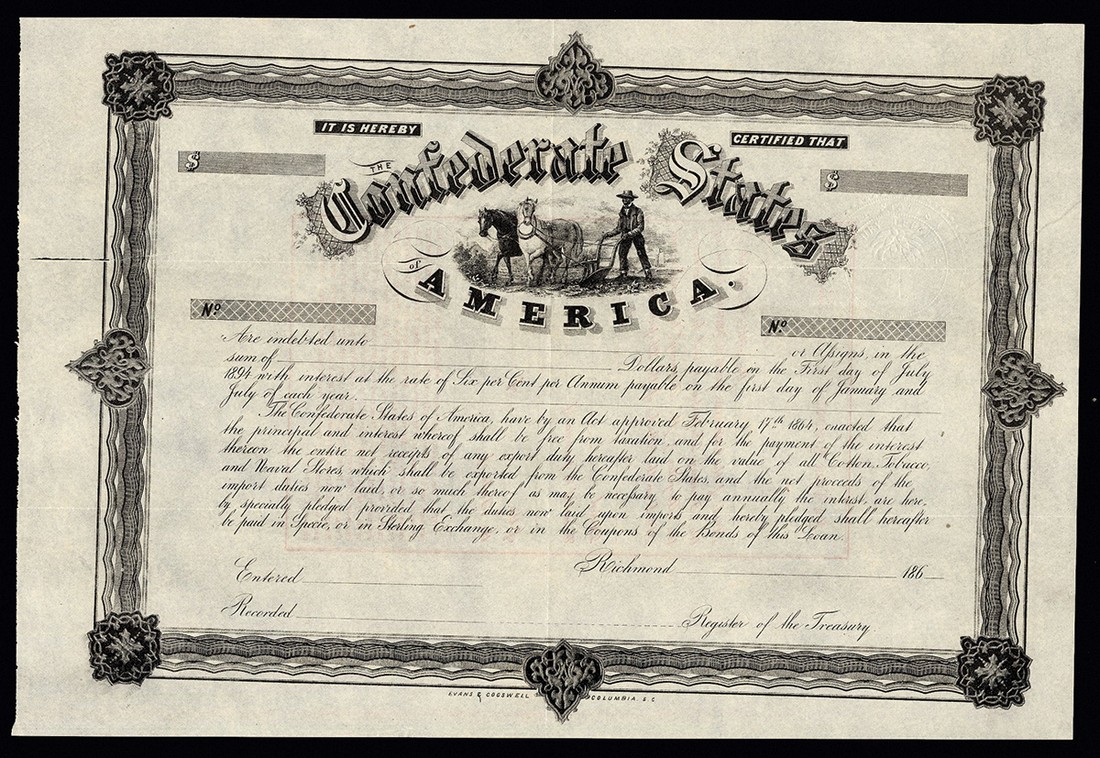 IT IS HEREBY
CERTIFIED THAT
$
$
THE
Confederate States
of
AMERICA.
No
No
Are indebted unto or Assigns, in the
sum of Dollars, payable on the First day of July
1894 with interest at the rate of Six per Cent per Annum payable on the first day of January and
July of each year.
The Confederate States of America, have by an Act approved February 17th 1864, enacted that
the principal and interest whereof shall be free from taxation, and for the payment of the interest
thereon the entire net receipts of any export duty hereafter laid on the value of all Cotton, Tobacco,
and Naval Stores, which shall be exported from the Confederate States, and the net proceeds of the
import duties now laid, or so much thereof as may be necessary to pay annually the interest, are here,
by specially pledged provided that the duties now laid upon imports and hereby pledged shall hereafter
be paid in Specie, or in Sterling Exchange, or in the Coupons of the Bonds of this Loan.
Entered
Richmond 186
Recorded
Register of the Treasury
EVANS & COGSWELL COLUMBIA. S.C